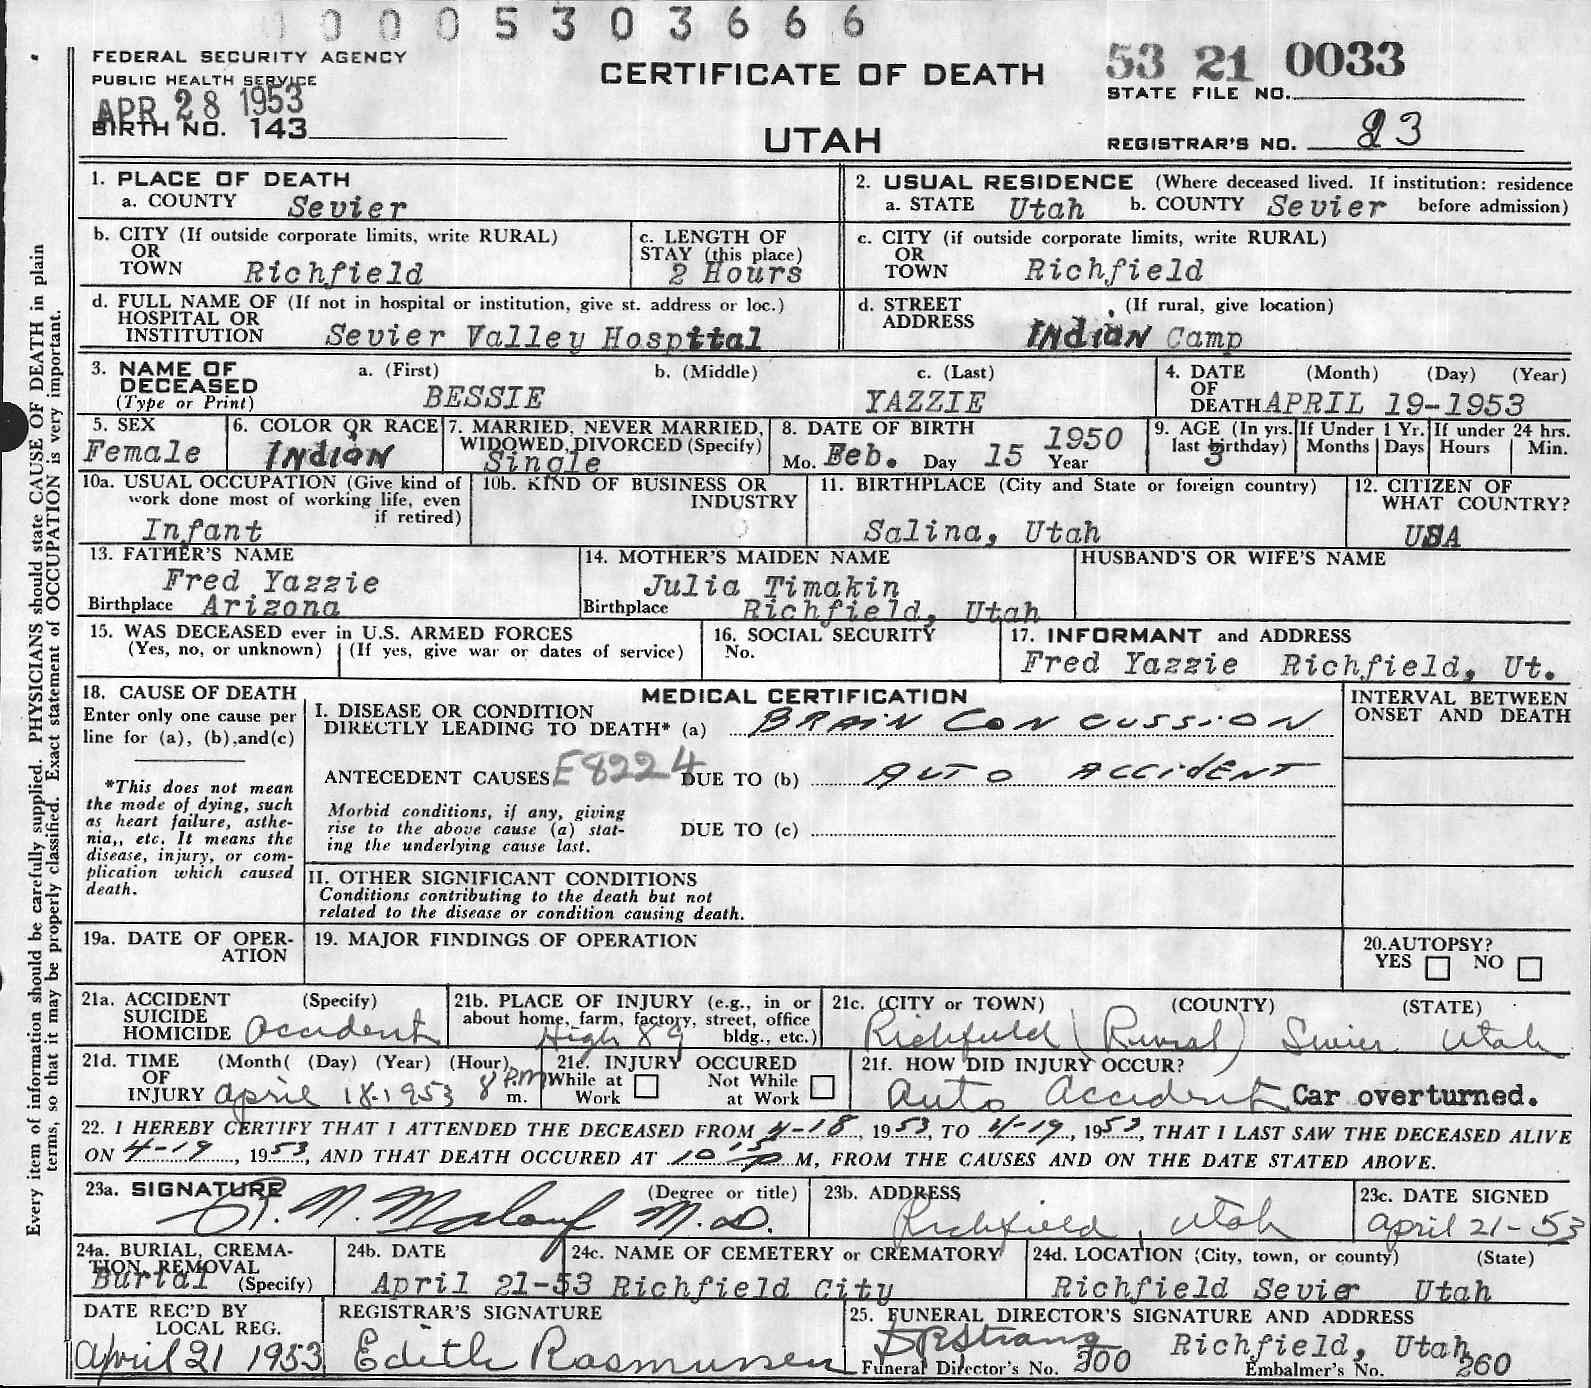 0 0 0 5 3 0 3 6 6 6
FEDERAL SECURITY AGENCY
PUBLIC HEALTH SERVICE
APR 28 1953
BIRTH NO. 143
CERTIFICATE OF DEATH
UTAH
53 21 0033
STATE FILE NO.
REGISTRAR'S NO. 23
Every item of information should be carefully supplied. PHYSICIANS should state CAUSE OF DEATH in plain
terms, so that it may be properly classified. Exact statement of OCCUPATION is very important.
1. PLACE OF DEATH
a. COUNTY Sevier
2. USUAL RESIDENCE (Where deceased lived. If institution: residence
a. STATE Utah b. COUNTY Sevier before admission)
b. CITY (If outside corporate limits, write RURAL)
OR
TOWN Richfield
c. LENGTH OF
STAY (this place)
2 Hours
c. CITY (if outside corporate limits, write RURAL)
OR
TOWN Richfield
d. FULL NAME OF (If not in hospital or institution, give st. address or loc.)
HOSPITAL OR
INSTITUTION Sevier Valley Hospital
d. STREET (If rural, give location)
ADDRESS Indian Camp
3. NAME OF
DECEASED
(Type or Print)
a. (First) b. (Middle) c. (Last)
BESSIE YAZZIE
4. DATE (Month) (Day) (Year)
OF
DEATH APRIL 19-1953
5. SEX
Female
6. COLOR OR RACE
Indian
7. MARRIED, NEVER MARRIED,
WIDOWED, DIVORCED (Specify)
Single
8. DATE OF BIRTH
Mo. Feb. Day 15 1950 Year
9. AGE (In yrs.
last birthday)
3
If Under 1 Yr.
Months Days
If under 24 hrs.
Hours Min.
10a. USUAL OCCUPATION (Give kind of
work done most of working life, even
if retired)
Infant
10b. KIND OF BUSINESS OR
INDUSTRY
11. BIRTHPLACE (City and State or foreign country)
Salina, Utah
12. CITIZEN OF
WHAT COUNTRY?
USA
13. FATHER'S NAME
Fred Yazzie
Birthplace Arizona
14. MOTHER'S MAIDEN NAME
Julia Timakin
Birthplace Richfield, Utah
HUSBAND'S OR WIFE'S NAME
15. WAS DECEASED ever in U.S. ARMED FORCES
(Yes, no, or unknown) (If yes, give war or dates of service)
16. SOCIAL SECURITY
No.
17. INFORMANT and ADDRESS
Fred Yazzie Richfield, Ut.
18. CAUSE OF DEATH
Enter only one cause per
line for (a), (b),and(c)
*This does not mean
the mode of dying, such
as heart failure, asthe-
nia,, etc. It means the
disease, injury, or com-
plication which caused
death.
MEDICAL CERTIFICATION
I. DISEASE OR CONDITION
DIRECTLY LEADING TO DEATH* (a) BRAIN CONCUSSION
ANTECEDENT CAUSES E8224 DUE TO (b) AUTO ACCIDENT
Morbid conditions, if any, giving
rise to the above cause (a) stat-
ing the underlying cause last.
DUE TO (c)
II. OTHER SIGNIFICANT CONDITIONS
Conditions contributing to the death but not
related to the disease or condition causing death.
INTERVAL BETWEEN
ONSET AND DEATH
19a. DATE OF OPER-
ATION
19. MAJOR FINDINGS OF OPERATION
20.AUTOPSY?
YES NO
21a. ACCIDENT (Specify)
SUICIDE
HOMICIDE Accident
21b. PLACE OF INJURY (e.g., in or
about home, farm, factory, street, office
bldg., etc.)
High 89
21c. (CITY or TOWN) (COUNTY) (STATE)
Richfield (Rural) Sevier Utah
21d. TIME (Month( (Day) (Year) (Hour)
OF
INJURY April 18-1953 8 PM m.
21e. INJURY OCCURED
While at Not While
Work at Work
21f. HOW DID INJURY OCCUR?
Auto Accident Car overturned.
22. I HEREBY CERTIFY THAT I ATTENDED THE DECEASED FROM 4-18, 1953, TO 4-19, 1953, THAT I LAST SAW THE DECEASED ALIVE
ON 4-19, 1953, AND THAT DEATH OCCURED AT 10 15 M, FROM THE CAUSES AND ON THE DATE STATED ABOVE.
23a. SIGNATURE (Degree or title)
M.D.
23b. ADDRESS
Richfield, Utah
23c. DATE SIGNED
April 21-53
24a. BURIAL, CREMA-
TION, REMOVAL
Burial (Specify)
24b. DATE
April 21-53
24c. NAME OF CEMETERY or CREMATORY
Richfield City
24d. LOCATION (City, town, or county) (State)
Richfield Sevier Utah
DATE REC'D BY
LOCAL REG.
April 21 1953
REGISTRAR'S SIGNATURE
Edith Rasmussen
25. FUNERAL DIRECTOR'S SIGNATURE AND ADDRESS
Richfield, Utah
Funeral Director's No. 300 Embalmer's No. 260